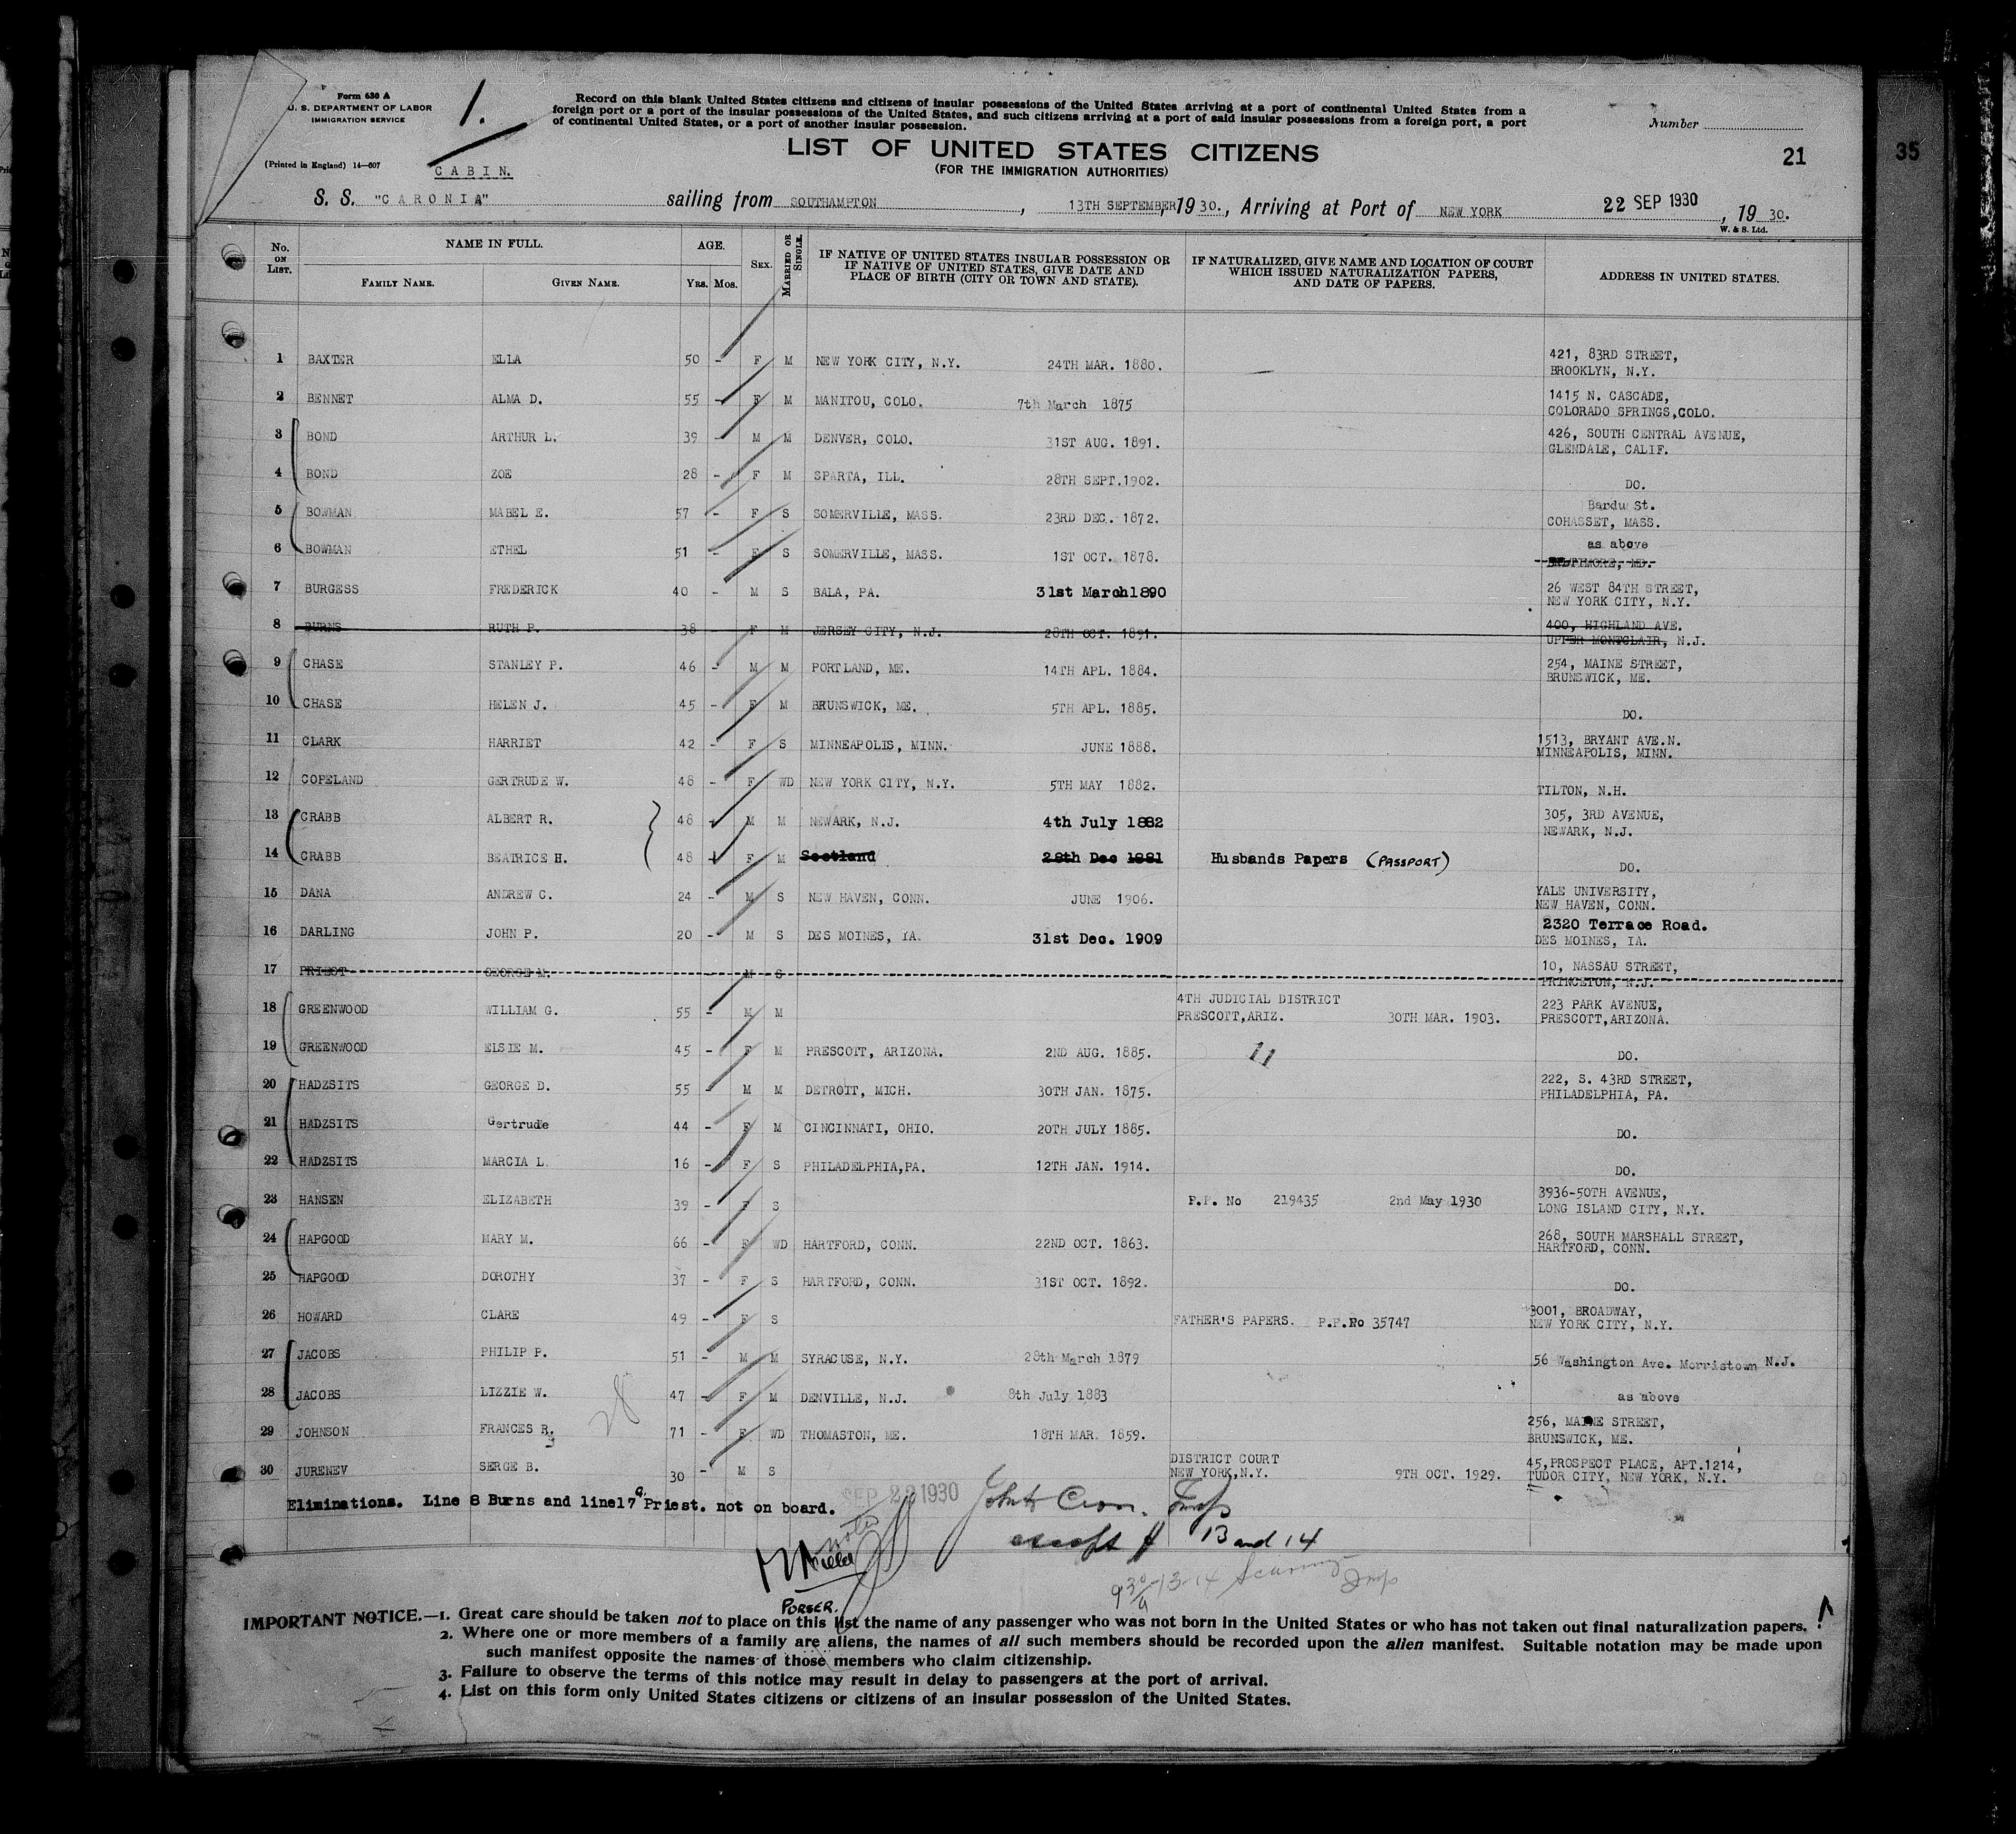 Form 630 A
U. S. DEPARTMENT OF LABOR
IMMIGRATION SERVICE
(Printed in England) 14—607
1.
CABIN.
Record on this blank United States citizens and citizens of insular possessions of the United States arriving at a port of continental United States from a
foreign port or a port of the insular possessions of the United States, and such citizens arriving at a port of said insular possessions from a foreign port, a port
of continental United States, or a port of another insular possession.
Number
LIST OF UNITED STATES CITIZENS
(FOR THE IMMIGRATION AUTHORITIES)
21
35
S. S. "CARONIA" sailing from SOUTHAMPTON, 13TH SEPTEMBER, 19 30., Arriving at Port of NEW YORK 22 SEP 1930, 19 30.
W. & S. Ltd.
No. ON LIST. NAME IN FULL. FAMILY NAME. GIVEN NAME. AGE. YRS. MOS. SEX. MARRIED OR SINGLE. IF NATIVE OF UNITED STATES INSULAR POSSESSION OR IF NATIVE OF UNITED STATES, GIVE DATE AND PLACE OF BIRTH (CITY OR TOWN AND STATE). IF NATURALIZED, GIVE NAME AND LOCATION OF COURT WHICH ISSUED NATURALIZATION PAPERS, AND DATE OF PAPERS. ADDRESS IN UNITED STATES.
1 BAXTER ELLA 50 - F M NEW YORK CITY, N.Y. 24TH MAR. 1880. — 421, 83RD STREET, BROOKLYN, N.Y.
2 BENNET ALMA D. 55 - F M MANITOU, COLO. 7th March 1875 1415 N. CASCADE, COLORADO SPRINGS,COLO.
3 BOND ARTHUR L. 39 - M M DENVER, COLO. 31ST AUG. 1891. 426, SOUTH CENTRAL AVENUE, GLENDALE, CALIF.
4 BOND ZOE 28 - F M SPARTA, ILL. 28TH SEPT.1902. DO.
5 BOWMAN MABEL E. 57 - F S SOMERVILLE, MASS. 23RD DEC. 1872. Bardu St. COHASSET, MASS.
6 BOWMAN ETHEL 51 - F S SOMERVILLE, MASS. 1ST OCT. 1878. as above BALTIMORE, MD.
7 BURGESS FREDERICK 40 - M S BALA, PA. 31st March1890 26 WEST 84TH STREET, NEW YORK CITY, N.Y.
8 BURNS RUTH P. 38 F M JERSEY CITY, N.J. 28TH OCT. 1891. 400, HIGHLAND AVE. UPPER MONTCLAIR, N.J.
9 CHASE STANLEY P. 46 - M M PORTLAND, ME. 14TH APL. 1884. 254, MAINE STREET, BRUNSWICK, ME.
10 CHASE HELEN J. 45 - F M BRUNSWICK, ME. 5TH APL. 1885. DO.
11 CLARK HARRIET 42 - F S MINNEAPOLIS, MINN. JUNE 1888. 1513, BRYANT AVE.N. MINNEAPOLIS, MINN.
12 COPELAND GERTRUDE W. 48 - F WD NEW YORK CITY, N.Y. 5TH MAY 1882. TILTON, N.H.
13 CRABB ALBERT R. 48 - M M NEWARK, N.J. 4th July 1882 305, 3RD AVENUE, NEWARK, N.J.
14 CRABB BEATRICE H. 48 F M Scotland 28th Dec 1881 Husbands Papers (PASSPORT) DO.
15 DANA ANDREW C. 24 - M S NEW HAVEN, CONN. JUNE 1906. YALE UNIVERSITY, NEW HAVEN, CONN.
16 DARLING JOHN P. 20 - M S DES MOINES, IA. 31st Dec. 1909 2320 Terrace Road. DES MOINES, IA.
17 PRIEST GEORGE M. M S 10, NASSAU STREET, PRINCETON, N.J.
18 GREENWOOD WILLIAM G. 55 - M M 4TH JUDICIAL DISTRICT PRESCOTT,ARIZ. 30TH MAR. 1903. 223 PARK AVENUE, PRESCOTT,ARIZONA.
19 GREENWOOD ELSIE M. 45 - F M PRESCOTT, ARIZONA. 2ND AUG. 1885. 11 DO.
20 HADZSITS GEORGE D. 55 - M M DETROIT, MICH. 30TH JAN. 1875. 222, S. 43RD STREET, PHILADELPHIA, PA.
21 HADZSITS Gertrude 44 - F M CINCINNATI, OHIO. 20TH JULY 1885. DO.
22 HADZSITS MARCIA L. 16 - F S PHILADELPHIA,PA. 12TH JAN. 1914. DO.
23 HANSEN ELIZABETH 39 - F S P.P. No 219435 2nd May 1930 3936-50TH AVENUE, LONG ISLAND CITY, N.Y.
24 HAPGOOD MARY M. 66 - F WD HARTFORD, CONN. 22ND OCT. 1863. 268, SOUTH MARSHALL STREET, HARTFORD, CONN.
25 HAPGOOD DOROTHY 37 - F S HARTFORD, CONN. 31ST OCT. 1892. DO.
26 HOWARD CLARE 49 - F S FATHER'S PAPERS. P.P.No 35747 3001, BROADWAY, NEW YORK CITY, N.Y.
27 JACOBS PHILIP P. 51 - M M SYRACUSE, N.Y. 28th March 1879 56 Washington Ave. Morristown N.J.
28 JACOBS LIZZIE W. 47 - F M DENVILLE, N.J. 8th July 1883 as above
29 JOHNSON FRANCES R. 71 - F WD THOMASTON, ME. 18TH MAR. 1859. 256, MAINE STREET, BRUNSWICK, ME.
30 JURENEV SERGE B. 30 - M S DISTRICT COURT NEW YORK,N.Y. 9TH OCT. 1929. 45,PROSPECT PLACE, APT.1214, TUDOR CITY, NEW YORK, N.Y.
28
Eliminations. Line 8 Burns and line17 Priest. not on board.
SEP 22 1930
except # 13 and 14
PURSER.
930 13-14
IMPORTANT NOTICE.—1. Great care should be taken not to place on this list the name of any passenger who was not born in the United States or who has not taken out final naturalization papers.
2. Where one or more members of a family are aliens, the names of all such members should be recorded upon the alien manifest. Suitable notation may be made upon
such manifest opposite the names of those members who claim citizenship.
3. Failure to observe the terms of this notice may result in delay to passengers at the port of arrival.
4. List on this form only United States citizens or citizens of an insular possession of the United States.